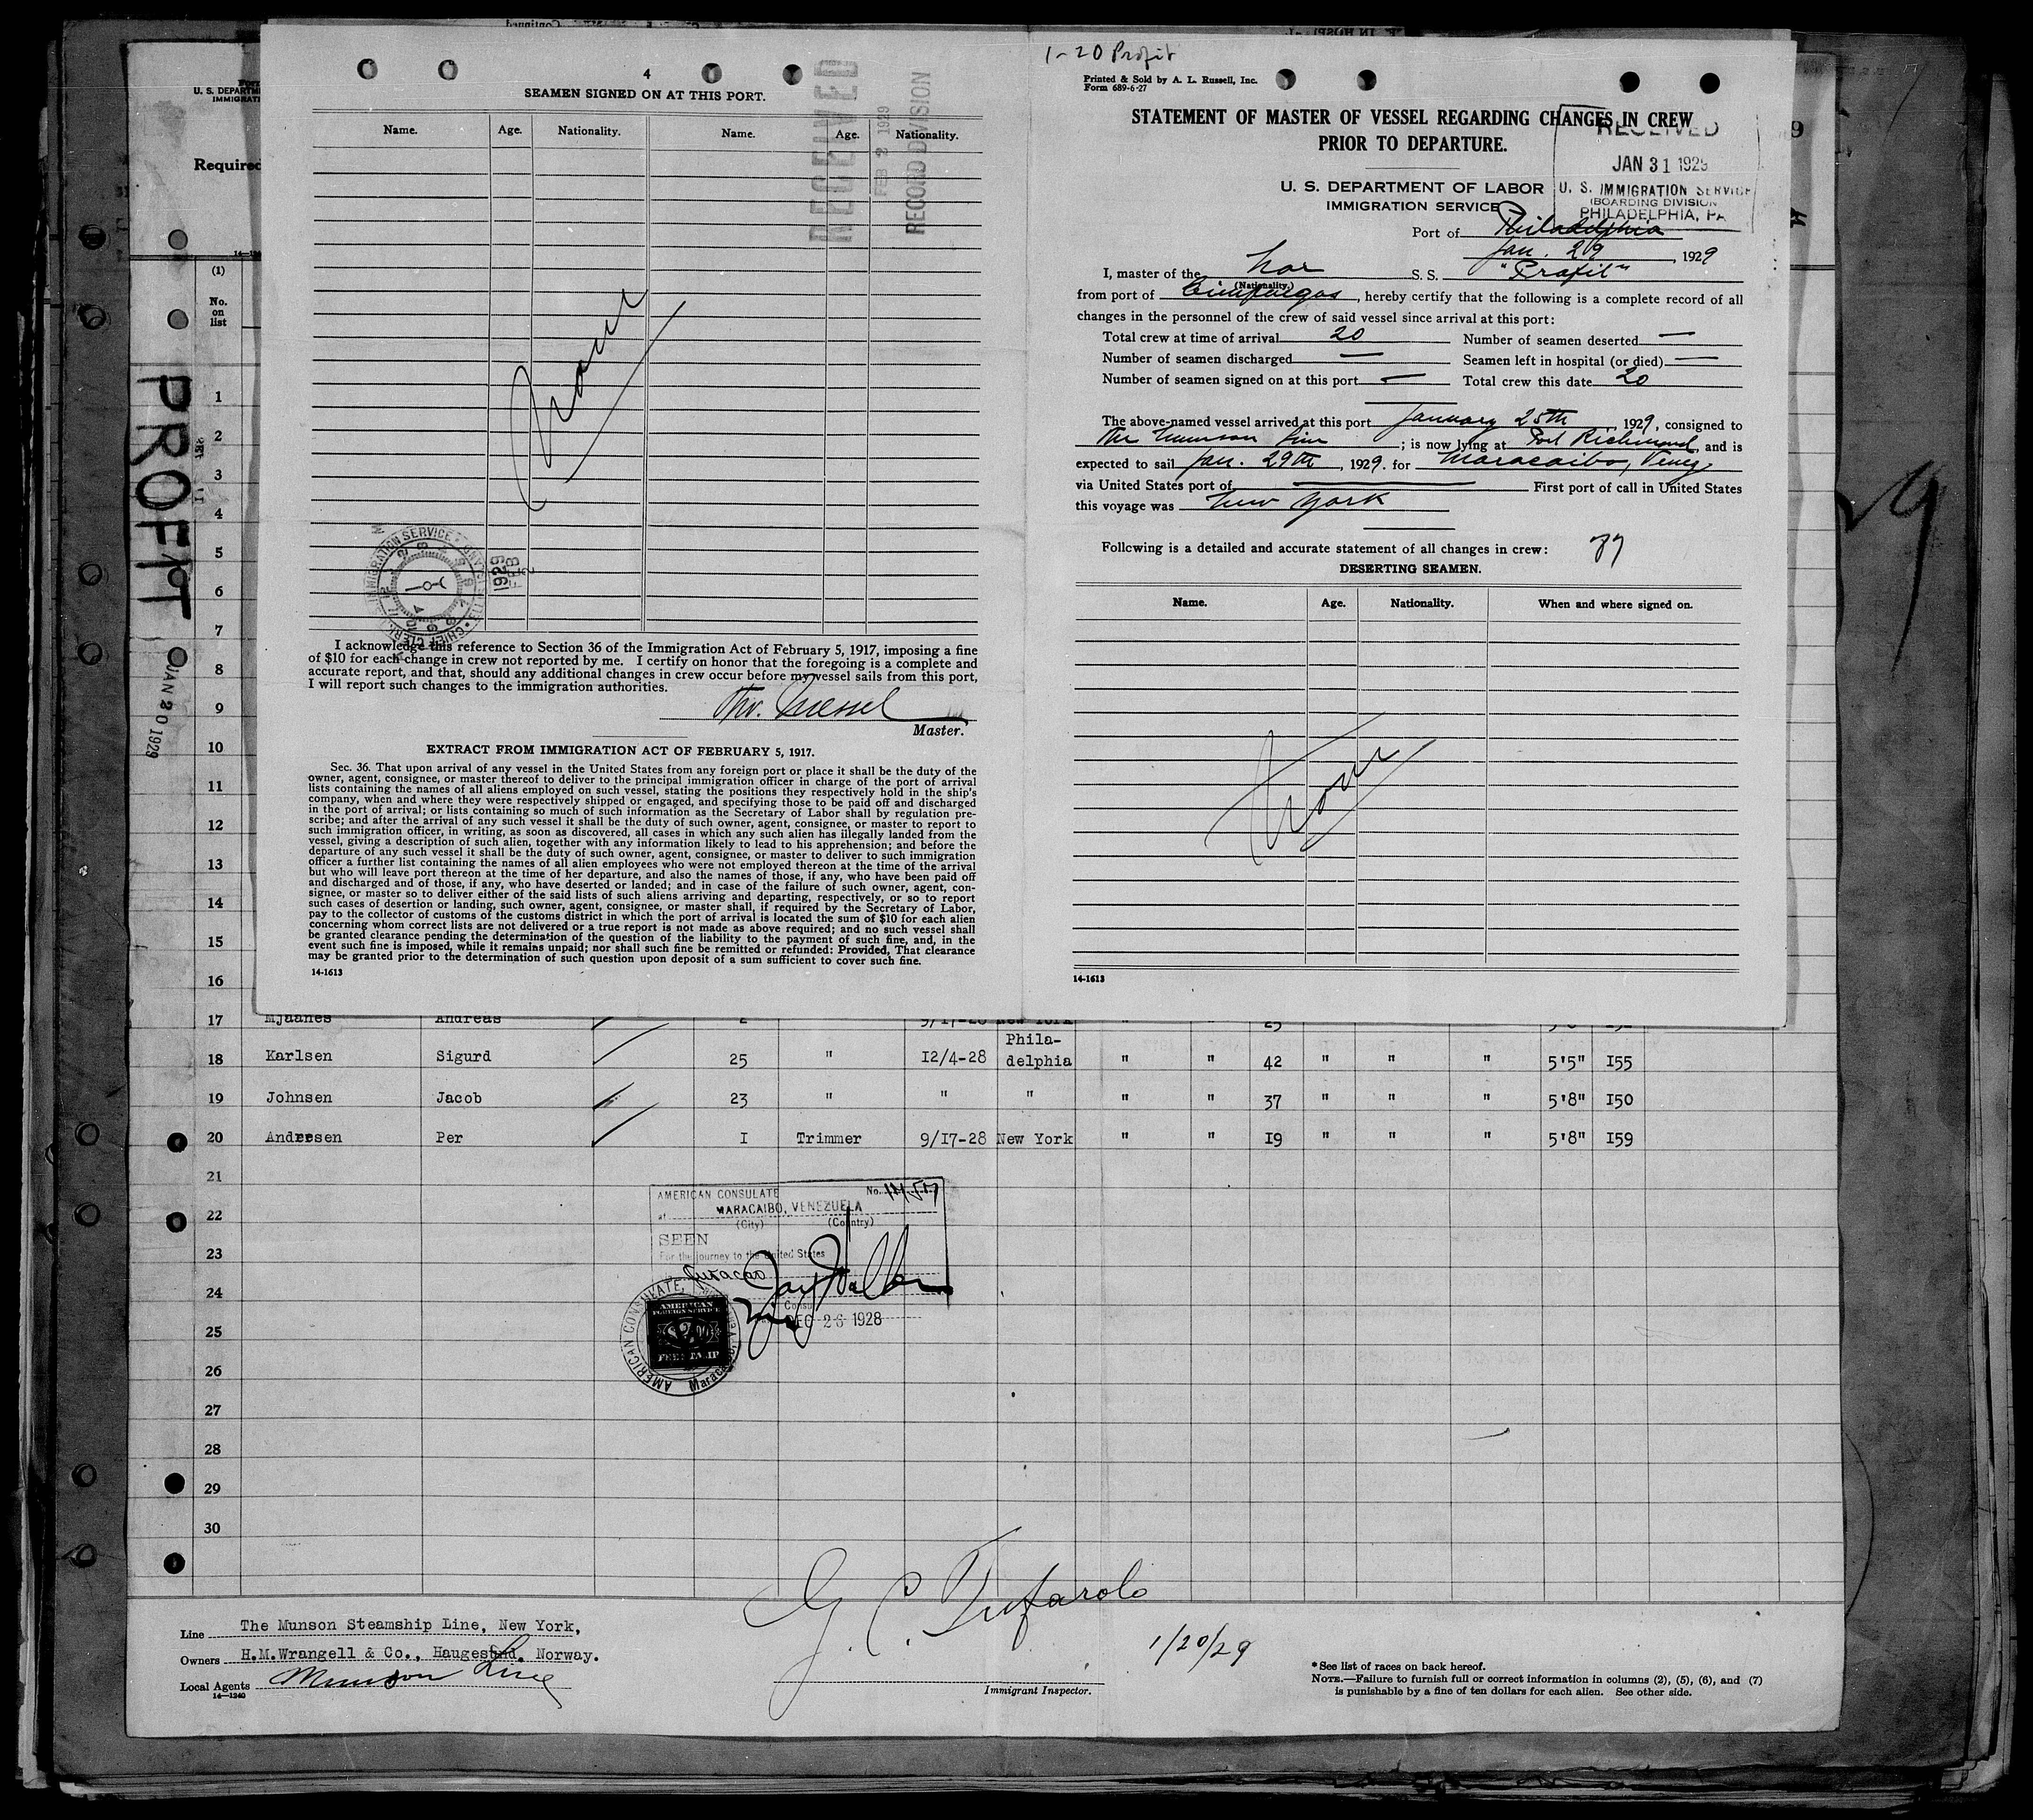 4
SEAMEN SIGNED ON AT THIS PORT.
Name. Age. Nationality. Name. Age. Nationality.
RECEIVED
FEB 2 1929
RECORD DIVISION
None
IMMIGRATION SERVICE
CHIEF CLERK
1929
FEB
I acknowledge this reference to Section 36 of the Immigration Act of February 5, 1917, imposing a fine
of $10 for each change in crew not reported by me. I certify on honor that the foregoing is a complete and
accurate report, and that, should any additional changes in crew occur before my vessel sails from this port,
I will report such changes to the immigration authorities.
Master.
EXTRACT FROM IMMIGRATION ACT OF FEBRUARY 5, 1917.
Sec. 36. That upon arrival of any vessel in the United States from any foreign port or place it shall be the duty of the
owner, agent, consignee, or master thereof to deliver to the principal immigration officer in charge of the port of arrival
lists containing the names of all aliens employed on such vessel, stating the positions they respectively hold in the ship's
company, when and where they were respectively shipped or engaged, and specifying those to be paid off and discharged
in the port of arrival; or lists containing so much of such information as the Secretary of Labor shall by regulation pre-
scribe; and after the arrival of any such vessel it shall be the duty of such owner, agent, consignee, or master to report to
such immigration officer, in writing, as soon as discovered, all cases in which any such alien has illegally landed from the
vessel, giving a description of such alien, together with any information likely to lead to his apprehension; and before the
departure of any such vessel it shall be the duty of such owner, agent, consignee, or master to deliver to such immigration
officer a further list containing the names of all alien employees who were not employed thereon at the time of the arrival
but who will leave port thereon at the time of her departure, and also the names of those, if any, who have been paid off
and discharged and of those, if any, who have deserted or landed; and in case of the failure of such owner, agent, con-
signee, or master so to deliver either of the said lists of such aliens arriving and departing, respectively, or so to report
such cases of desertion or landing, such owner, agent, consignee, or master shall, if required by the Secretary of Labor,
pay to the collector of customs of the customs district in which the port of arrival is located the sum of $10 for each alien
concerning whom correct lists are not delivered or a true report is not made as above required; and no such vessel shall
be granted clearance pending the determination of the question of the liability to the payment of such fine, and, in the
event such fine is imposed, while it remains unpaid; nor shall such fine be remitted or refunded: Provided, That clearance
may be granted prior to the determination of such question upon deposit of a sum sufficient to cover such fine.
14-1613
1-20 Profit
Printed & Sold by A. L. Russell, Inc.
Form 689-6-27
STATEMENT OF MASTER OF VESSEL REGARDING CHANGES IN CREW
PRIOR TO DEPARTURE.
RECEIVED
JAN 31 1929
U. S. IMMIGRATION SERVICE
(BOARDING DIVISION
PHILADELPHIA, PA
U. S. DEPARTMENT OF LABOR
IMMIGRATION SERVICE
Port of Philadelphia
Jan. 29, 1929
I, master of the Nor S. S. "Profit"
(Nationality)
from port of Cienfuegos, hereby certify that the following is a complete record of all
changes in the personnel of the crew of said vessel since arrival at this port:
Total crew at time of arrival 20 Number of seamen deserted —
Number of seamen discharged — Seamen left in hospital (or died) —
Number of seamen signed on at this port — Total crew this date 20
The above-named vessel arrived at this port January 25th, 1929, consigned to
The Munson Line; is now lying at Port Richmond, and is
expected to sail Jan. 29th, 1929. for Maracaibo, Venez.
via United States port of — First port of call in United States
this voyage was New York
Following is a detailed and accurate statement of all changes in crew:
DESERTING SEAMEN.
Name. Age. Nationality. When and where signed on.
None
14-1613
U. S. DEPARTM
IMMIGRATI
Required
(1)
No.
on
list
PROFIT
JAN 20 1929
1
2
3
4
5
6
7
8
9
10
11
12
13
14
15
16
17 Mjaanes Andreas 2 9/17-28 New York
18 Karlsen Sigurd 25 " 12/4-28 Phila-
delphia " " 42 " " " 5'5" 155
19 Johnsen Jacob 23 " " " " " 37 " " " 5'8" 150
20 Andresen Per 1 Trimmer 9/17-28 New York " " 19 " " " 5'8" 159
21
22
23
24
25
26
27
28
29
30
AMERICAN CONSULATE No.
at MARACAIBO, VENEZUELA
(City) (Country)
SEEN
For the journey to the United States
Curacao
Consul
DEC 26 1928
AMERICAN CONSULATE,
AMERICAN
FOREIGN SERVICE
FEE STAMP
Line The Munson Steamship Line, New York,
Owners H.M.Wrangell & Co., Haugesund. Norway.
Local Agents Munson Line
14-1240
G. C. Tufarolo
1/20/29
Immigrant Inspector.
* See list of races on back hereof.
NOTE.—Failure to furnish full or correct information in columns (2), (5), (6), and (7)
is punishable by a fine of ten dollars for each alien. See other side.